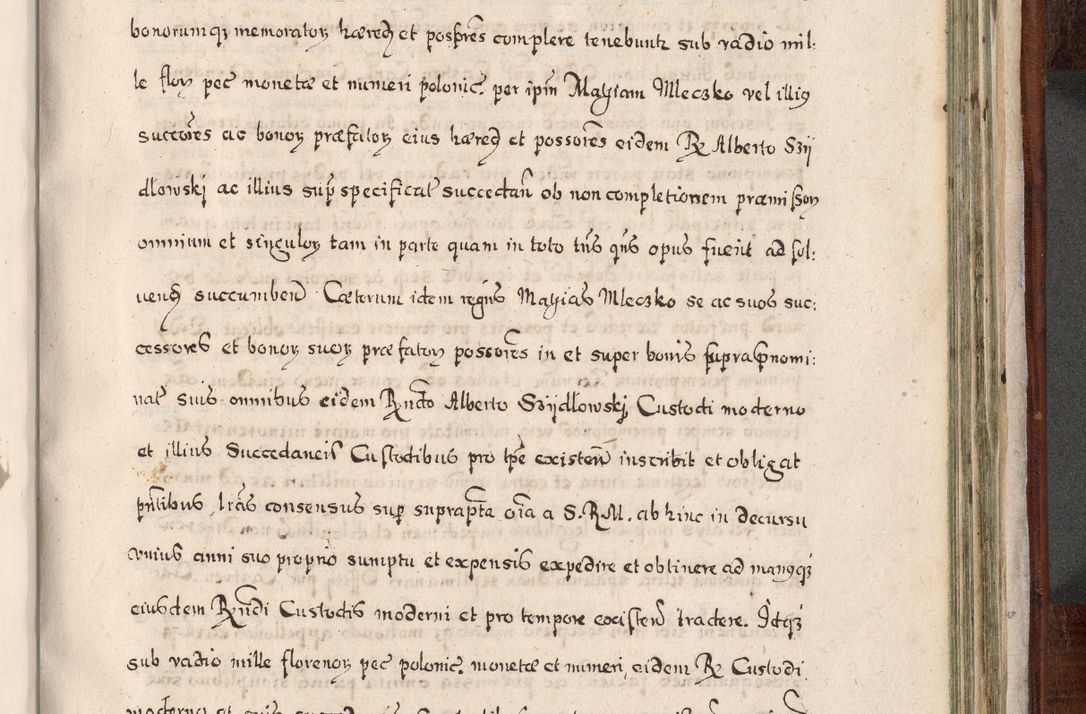 bonorumqꝫ memoratoꝝ hæred et possres complere tenebuntr sub vadio mil:
le floꝝ pec monetæ et numeri polonic. per ipm Mathiam Mleczko vel illiꝰ
succores ac bonoꝝ præfatoꝝ eius hæred et possores eidem R Alberto Szÿ
dłowskj ac illius sup specificat succedan ob non completionem præmissoꝝ
omnium et singuloꝝ tam in parte quam in toto tns qns opus fuerit ad sol:
vend succumben Cæterum idem regnus Mathias Mleczko se ac suos suc:
cessores et bonoꝝ suoꝝ præfatoꝝ possores in et super bonis suprapnomi:
nat suis omnibus eidem Rndo Alberto Szÿdłowskj Custodi moderno
et illius Succedaneis Custodibus pro tpe existen inscribit et obligat
pntibus lras consensus sup suprapta oia a S.R.M. ab hinc in decursu
vnius anni suo proprio sumptu et expensis expedire et obtinere ad manꝰqꝫ
eiusdem Rndi Custodis moderni et pro tempore existen tradere. Idqꝫ
sub vadio mille florenoꝝ pec polonic. monetæ et numeri, eidem R Custodi